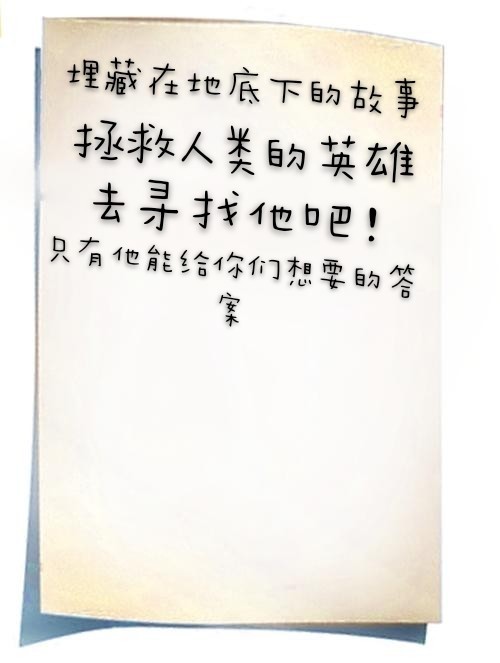 埋藏在地底下的故事
拯救人类的英雄
去寻找他吧!
只有他能给你们想要的答
案